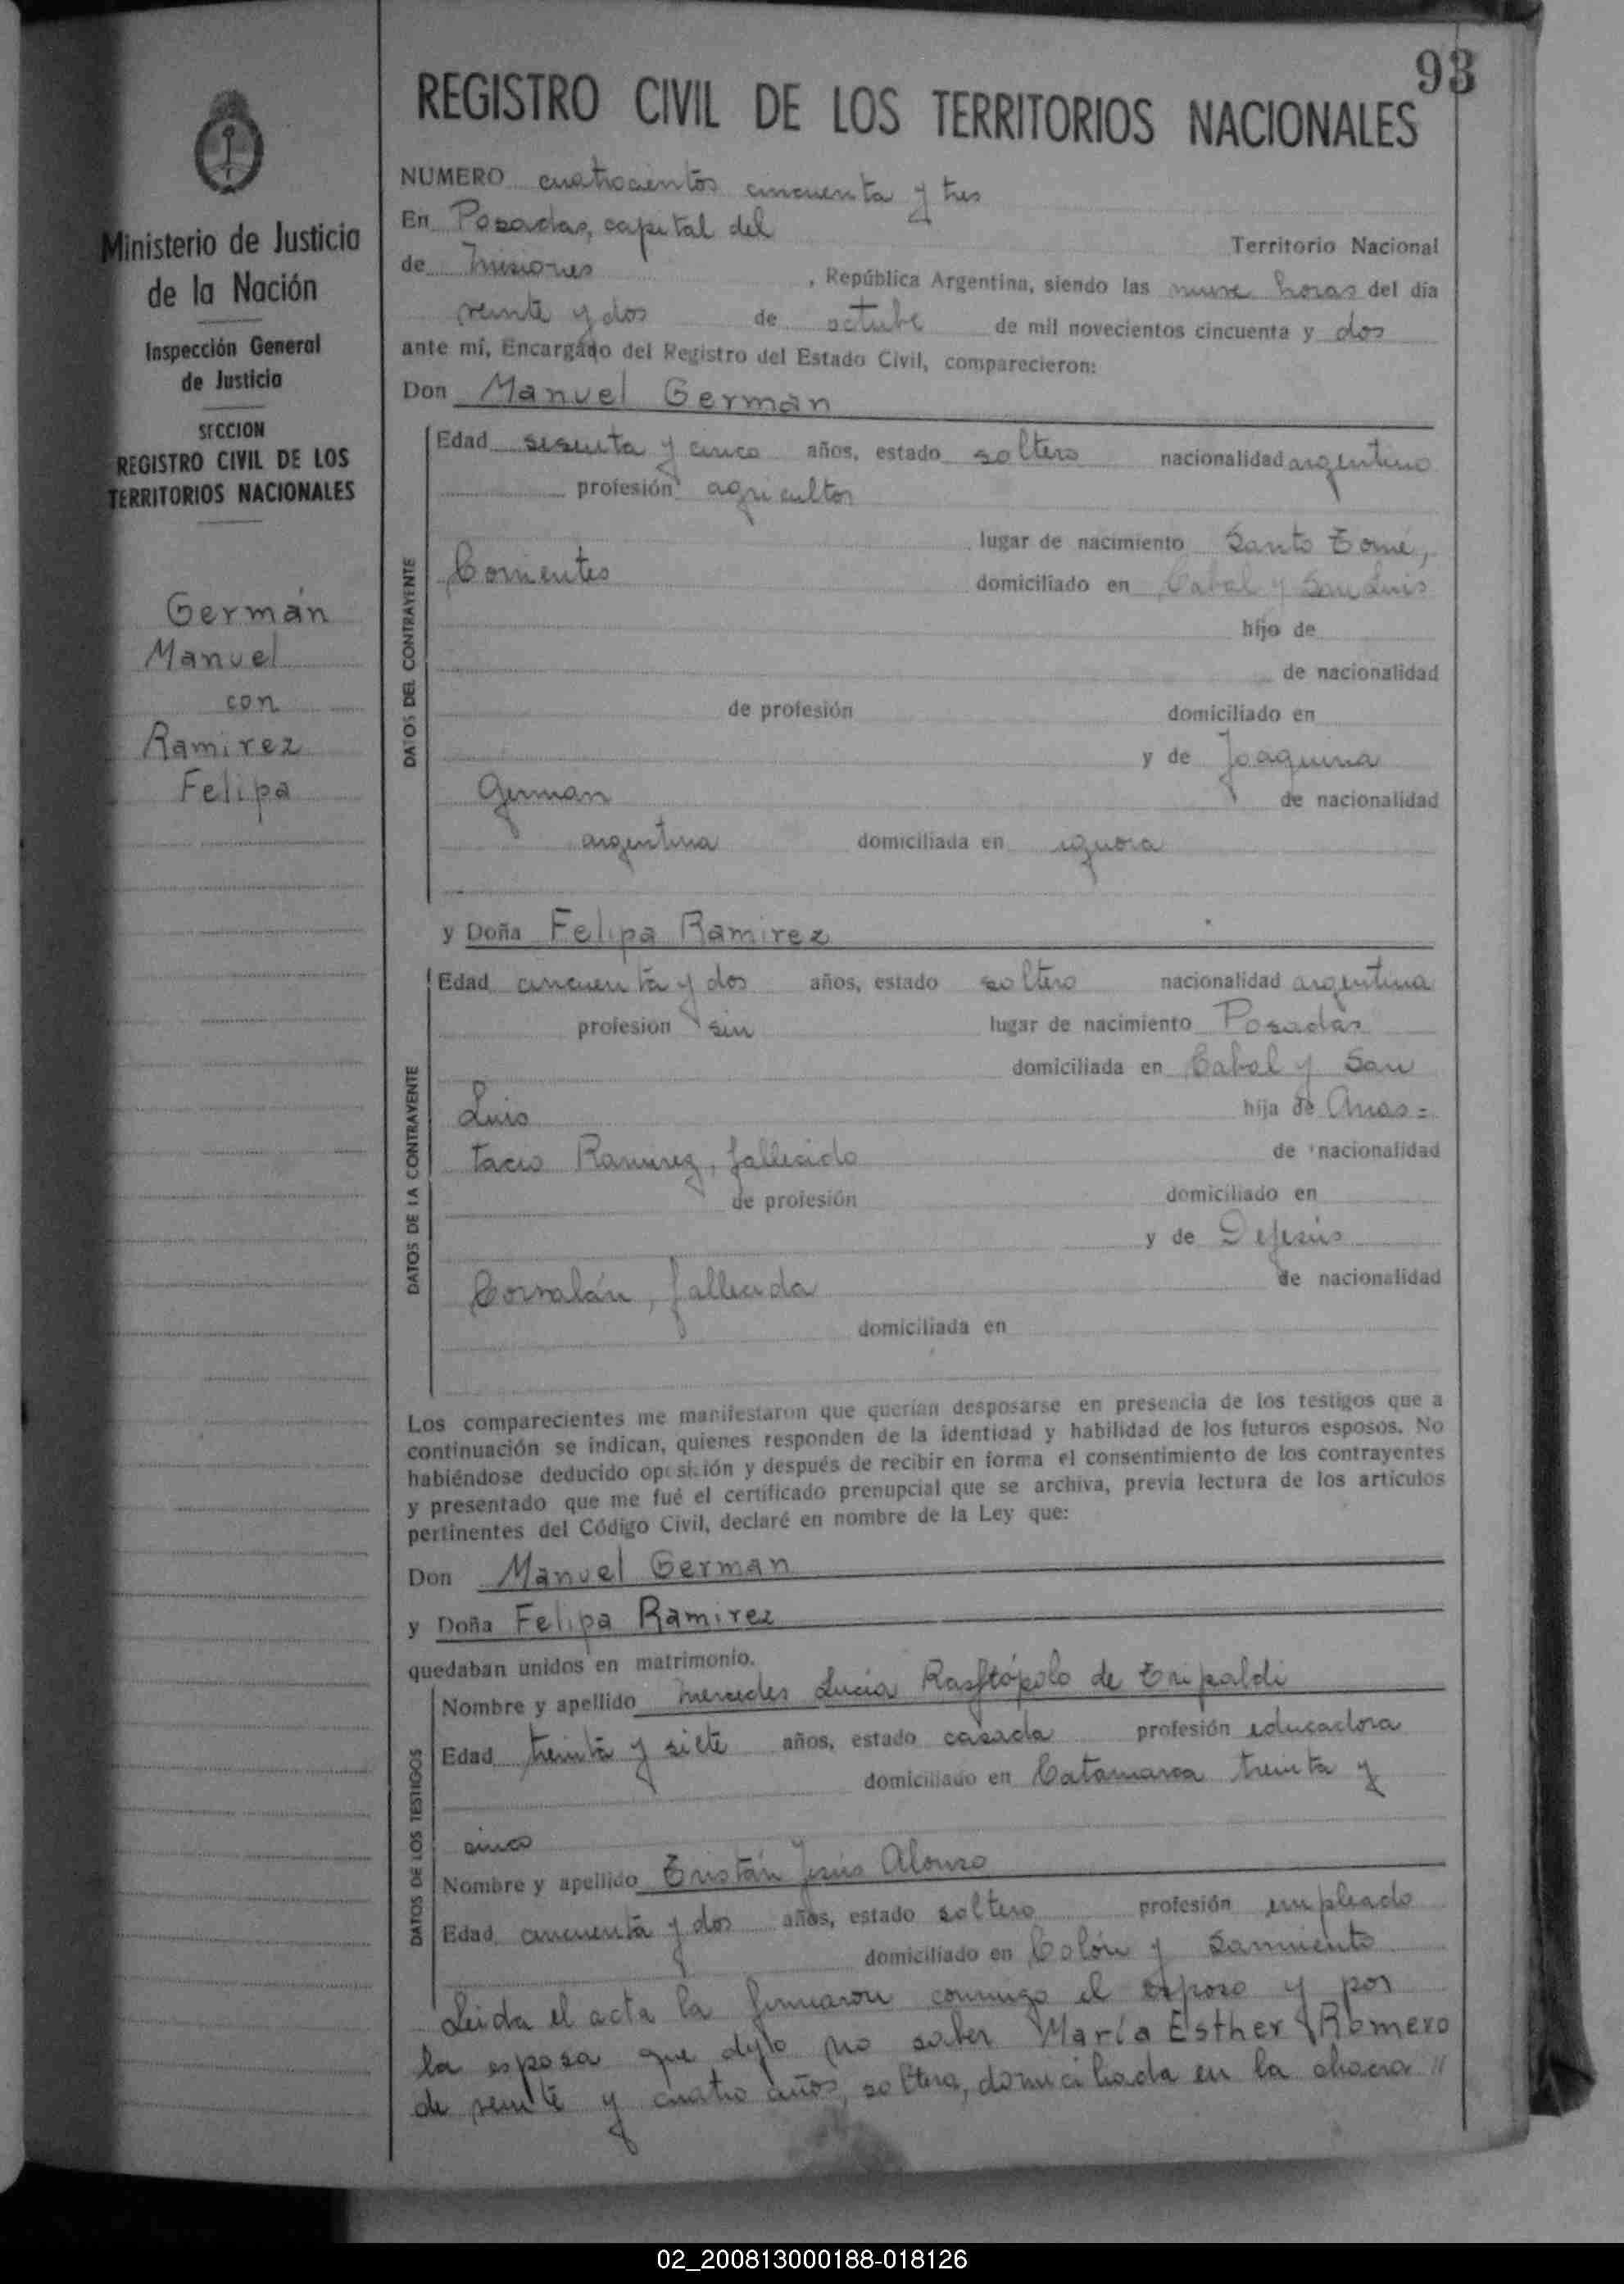 93
REGISTRO CIVIL DE LOS TERRITORIOS NACIONALES
Ministerio de Justicia
de la Nación
Inspección General
de Justicia
SECCION
REGISTRO CIVIL DE LOS
TERRITORIOS NACIONALES
Germán
Manuel
con
Ramirez
Felipa
NUMERO cuatrocientos cincuenta y tres
En Posadas, capital del Territorio Nacional
de Misiones , República Argentina, siendo las nueve horas del día
veinte y dos de octubre de mil novecientos cincuenta y dos
ante mí, Encargado del Registro del Estado Civil, comparecieron:
Don Manuel Germán
DATOS DEL CONTRAYENTE
Edad sesenta y cinco años, estado soltero nacionalidad argentino
profesión agricultor
lugar de nacimiento Santo Tomé,
Corrientes domiciliado en Cabal y San Luis
hijo de
de nacionalidad
de profesión domiciliado en
y de Joaquina
German de nacionalidad
argentina domiciliada en ignora
y Doña Felipa Ramirez
DATOS DE LA CONTRAYENTE
Edad cincuenta y dos años, estado soltero nacionalidad argentina
profesion sin lugar de nacimiento Posadas
domiciliada en Cabal y San
Luis hija de Anas=
tacio Ramirez, fallecido de nacionalidad
de profesión domiciliado en
y de DeJesús
Corralán, fallecida de nacionalidad
domiciliada en
Los comparecientes me manifestaron que querían desposarse en presencia de los testigos que a
continuación se indican, quienes responden de la identidad y habilidad de los futuros esposos. No
habiéndose deducido oposición y después de recibir en forma el consentimiento de los contrayentes
y presentado que me fué el certificado prenupcial que se archiva, previa lectura de los artículos
pertinentes del Código Civil, declaré en nombre de la Ley que:
Don Manuel German
y Doña Felipa Ramirez
quedaban unidos en matrimonio.
DATOS DE LOS TESTIGOS
Nombre y apellido Mercedes Lucía de Tripaldi
Edad treinta y siete años, estado casada profesión educadora
domiciliado en Catamarca treinta y
cinco
Nombre y apellido Tristán Jesús Alonso
Edad cincuenta y dos años, estado soltero profesión empleado
domiciliado en Colón y Sarmiento
Leida el acta la firmaron conmigo el esposo y por
la esposa que dijo no saber María Esther Romero
de veinte y cuatro años, soltera, domiciliada en la chacra //
02_200813000188-018126